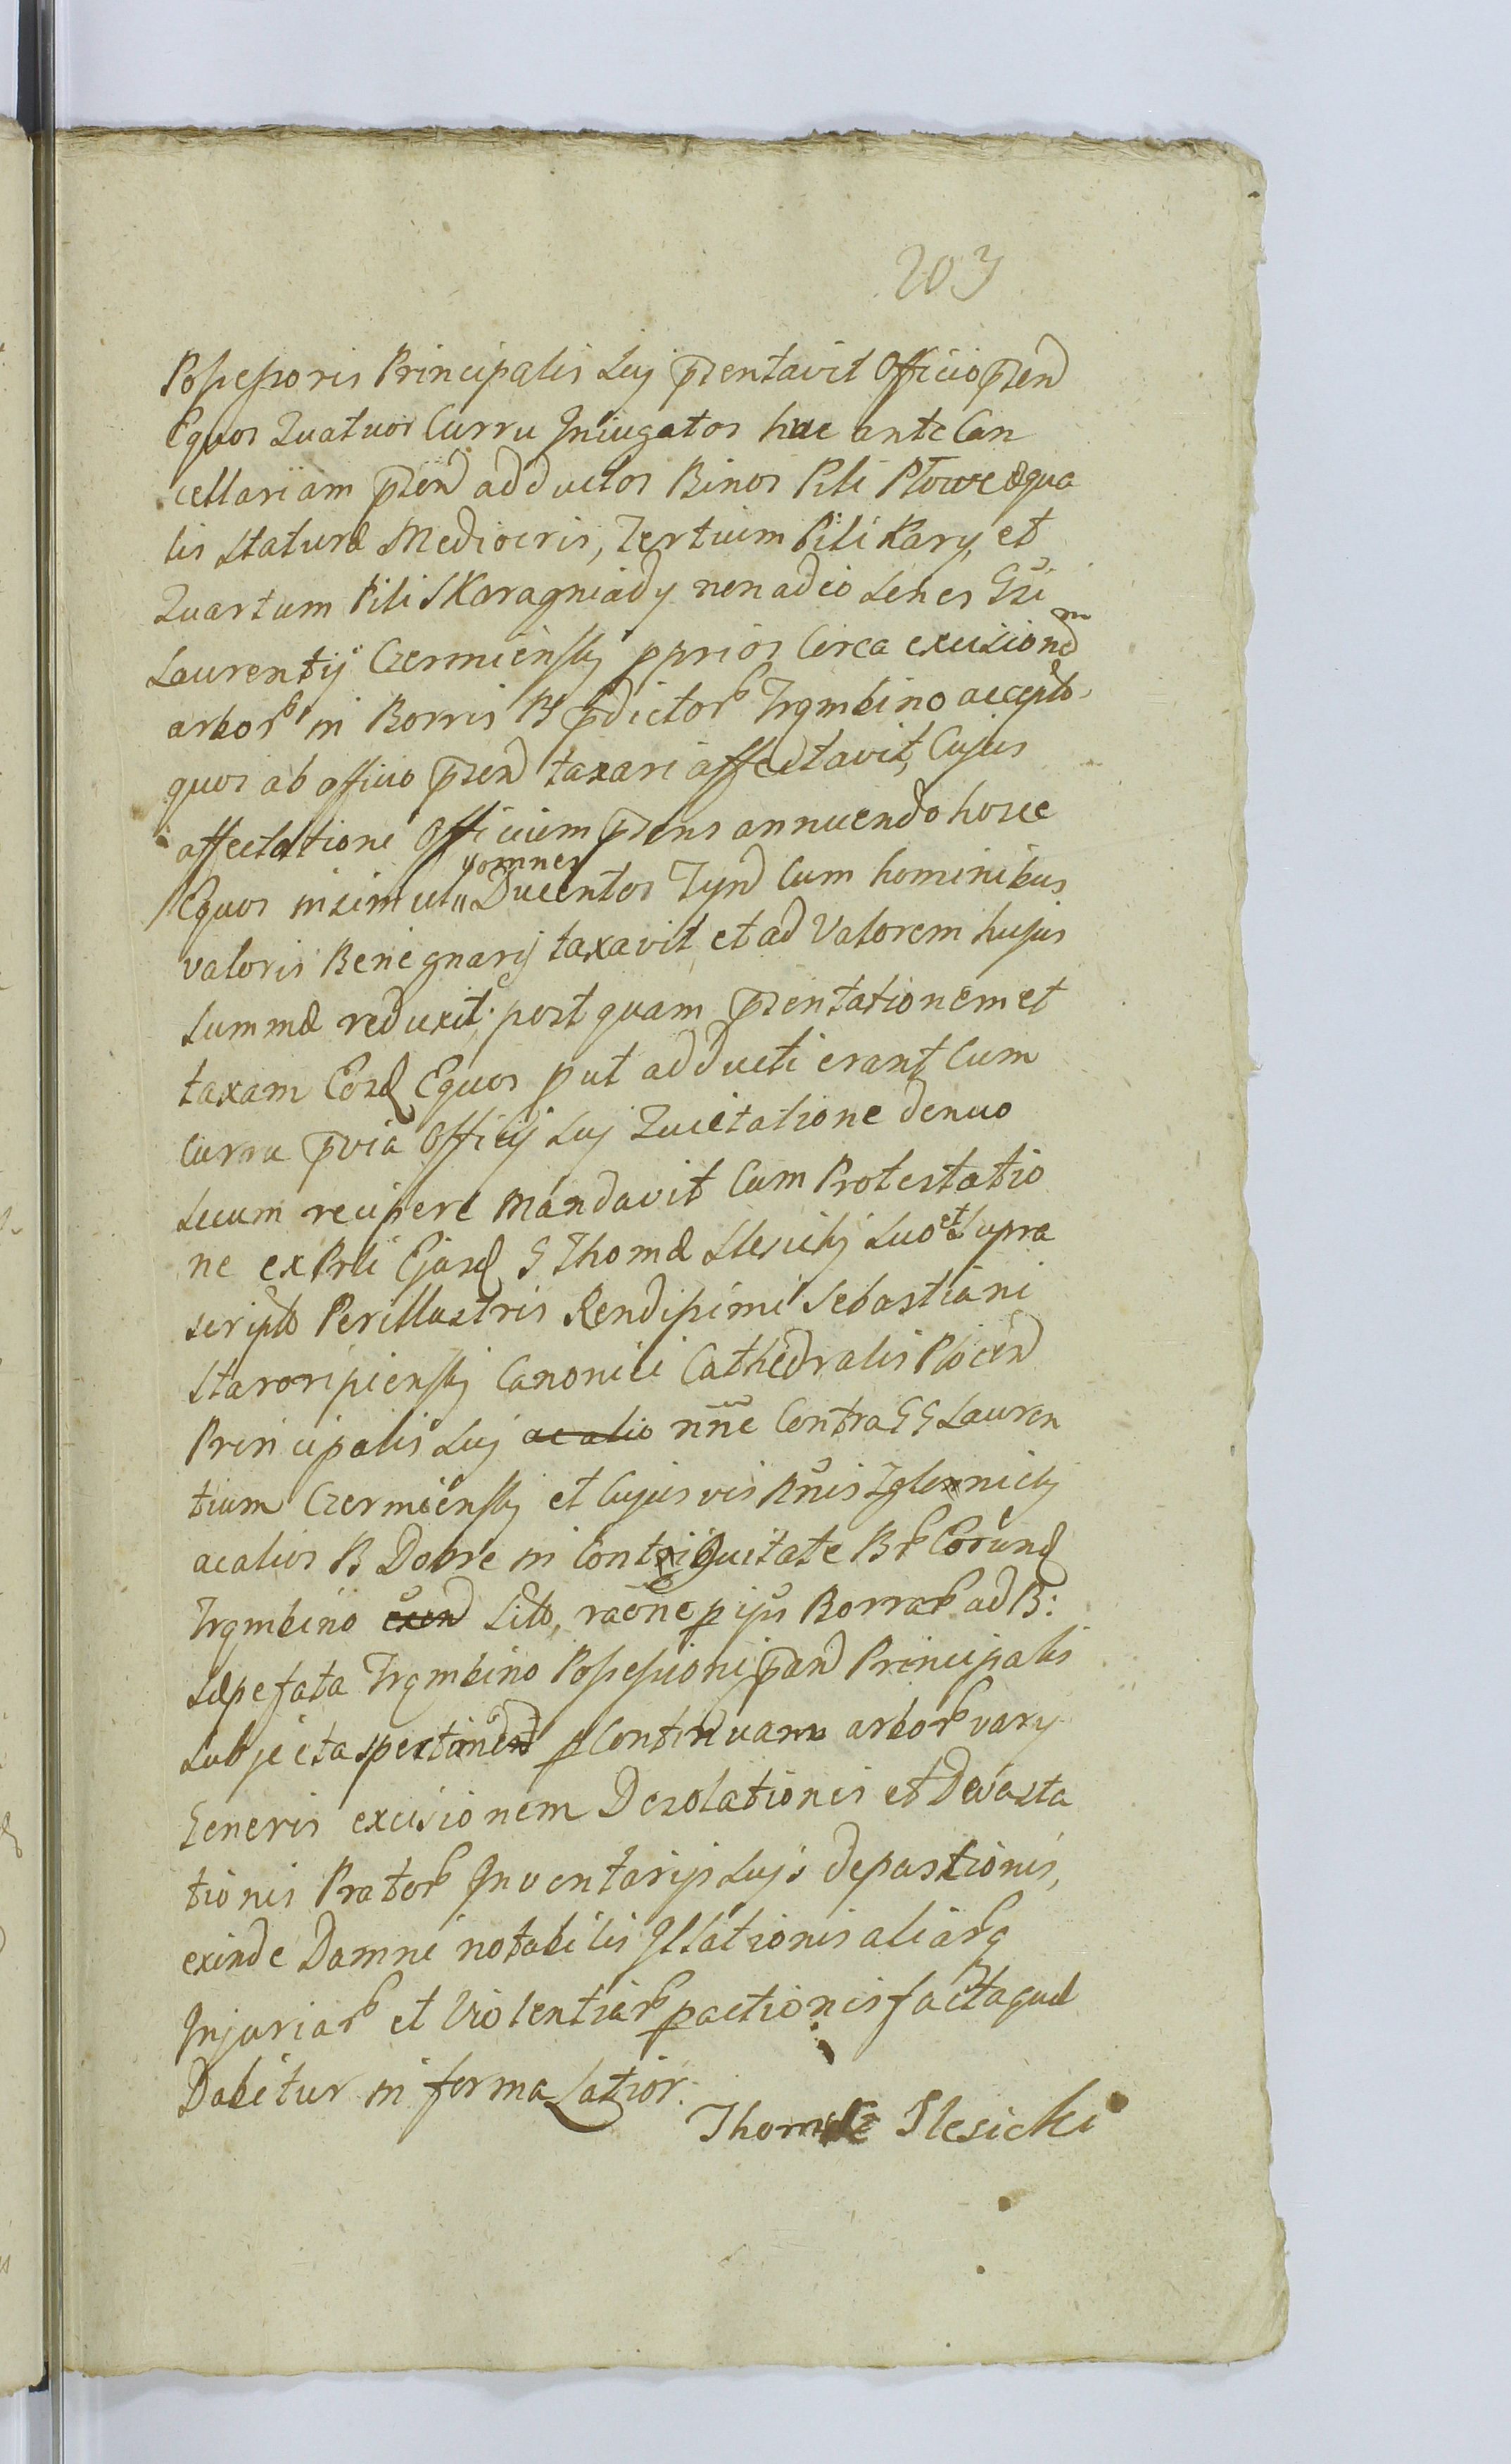 203
Possessoris Principalis Sui p̄zentavit Officio p̄zen
Equos Quatuor Curru Iniugatos huc ante Can
cellariam p̄zen adductos Binos Pili Płowe æqua
lis staturæ Mediocris, Tertium Pili Kary, et
Quartum Pili SKaragniady non adeo senes Gsi
Laurentij Czermiensky pprios Circa excisionem
arbor in Borris B p̄dictor Trąmbino accepto
quos ab officio p̄zen taxari affectavit, Cujus
affectationi Officium p̄zens annuendo hosce
Equos insimul omnes Ducentos Tyn Cum hominibus
valoris Benegnarij taxavit et ad Valorem hujus
summæ reduxit. post quam p̄zentationem et
taxam Eosd Equos put adducti erant Cum
Curru p̄via Officij sui Quietatione denuo
secum recipere mandavit Cum Protestatio
ne ex Prti Ejusd G Thomæ Slesicky suo et supra
scripto Perillustris Rendissimi Sebastiani
Staroripiensky Canonici Cathedralis Plocen
Principalis sui ac alio nn̄e Contra GG Lauren
tium Czermiensky et Cujusvis Nn̄is
acalios B Dobre in Contiguitate B Eorund
Trąmbino sito, raōne p ips Borrar ad B:
sæpefata Trąmbino Possessioni p̄an Principalis
subjecta spectan p Continuam arbor vary
Generis excisionem Desolationis et Devasta
tionis Prator Inventarijs suis depastionis,
exinde Damni notabilis Illationis aliarq
Injuriar et Violentiar pactionis facta quæ
Dabitur in forma Latior.
Thomas Slesicki